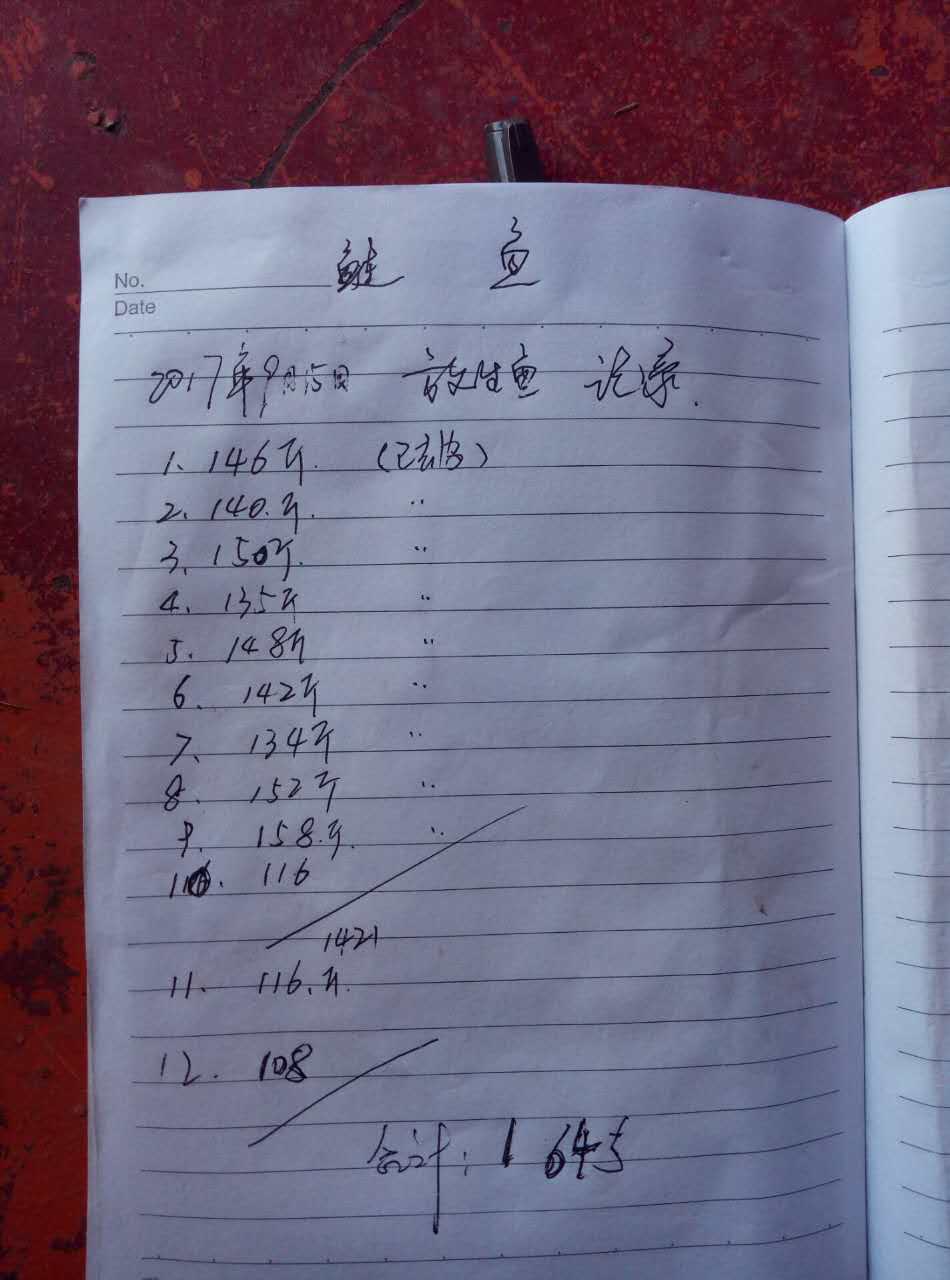 No.
鲢 鱼
Date
2017年9月15日 放生鱼 记录.
1、146斤. (已去皮)
2、140.斤. 〃
3、150斤. 〃
4、135斤 〃
5、148斤 〃
6、142斤 〃
7、134斤 〃
8、152斤 〃
9、158.斤. 〃
10. 116
1421
11. 116.斤.
12. 108
合计: 1645